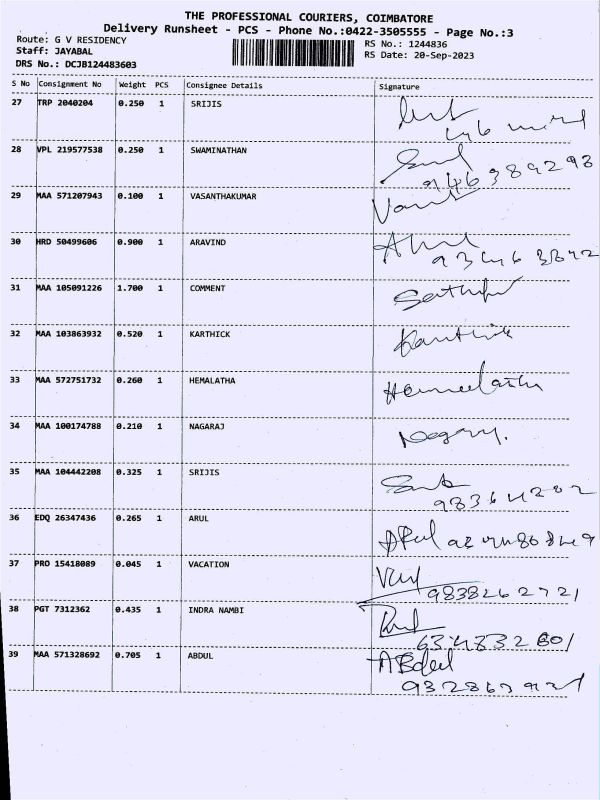 THE PROFESSIONAL COURIERS, COIMBATORE
Delivery Runsheet - PCS - Phone No.:0422-3505555 - Page No.:3
Route: G V RESIDENCY
Staff: JAYABAL
DRS No.: DCJB124483603
RS No.: 1244836
RS Date: 20-Sep-2023
S No Consignment No Weight PCS Consignee Details Signature
27 TRP 2040204 0.250 1 SRIJIS
28 VPL 219577538 0.250 1 SWAMINATHAN
29 MAA 571207943 0.100 1 VASANTHAKUMAR
30 HRD 50499606 0.900 1 ARAVIND
31 MAA 105091226 1.700 1 COMMENT
32 MAA 103863932 0.520 1 KARTHICK Karthick
33 MAA 572751732 0.260 1 HEMALATHA
34 MAA 100174788 0.210 1 NAGARAJ
35 MAA 104442208 0.325 1 SRIJIS
36 EDQ 26347436 0.265 1 ARUL ARul
37 PRO 15418089 0.045 1 VACATION
9838262721
38 PGT 7312362 0.435 1 INDRA NAMBI
39 MAA 571328692 0.705 1 ABDUL ABdul